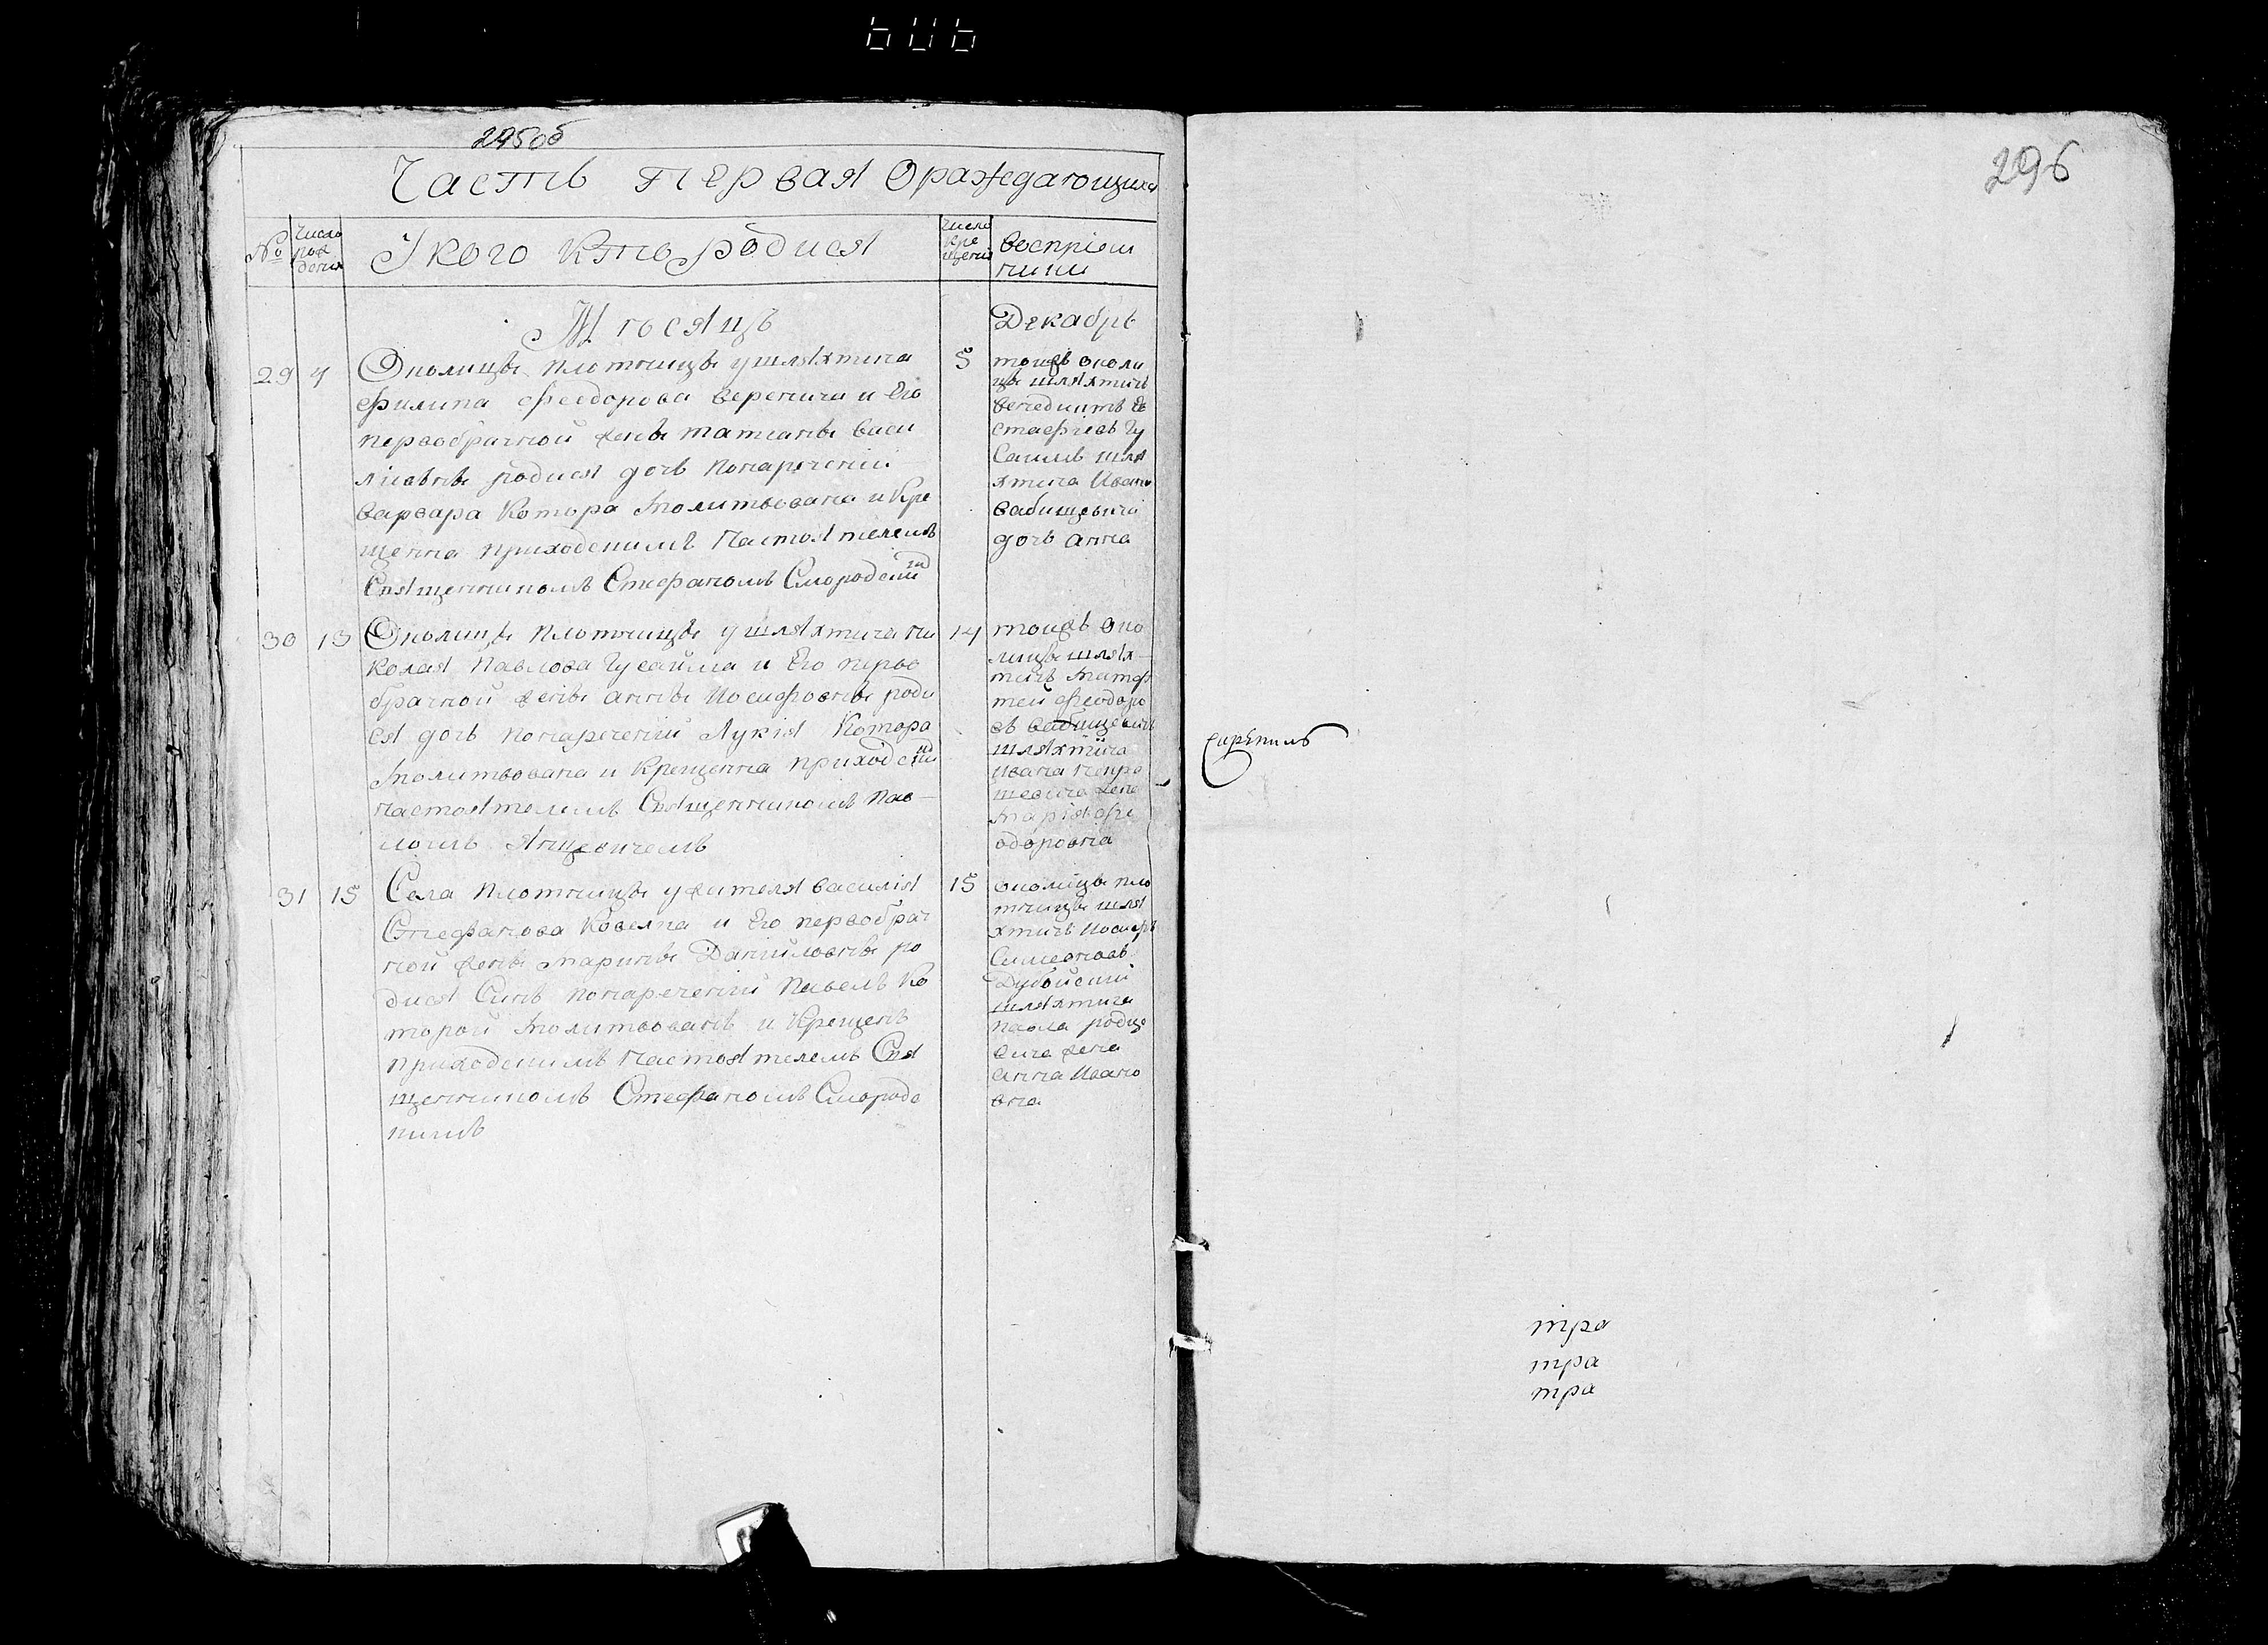 606
295об
296
Часть первая Ораждающихся
№ Число рождения
Укого Кто родися
Число крещения
восприемники
Мѣсяцъ
Декабрь
29 4
Околицы Плотницы у шляхтича
Филипа Феодорова Веренича и Его
первобрачной жены татианы Васи
лиевны родися дочь понаречений
варвара Котора молитвована и Кре
щенна приходскимъ Настоятелемъ
Священникомъ Стефаномъ Смородски
5
тоижъ околи
цы шляхтичъ
Венедиктъ Ев
стафиевъ Гу
Саимъ шля
хтича Ивана
бабицевича
дочь анна
30 13
Околицы Плотницы у шляхтича Ни
колая Павлова Гусаима и Его перво
брачной жены анны Иосифовны роди
ся дочь понаречений Лукія Котора
молитвована и Крещенна приходски
настоятелемъ Священникомъ Пав-
ломъ Янцевичемъ
14
тоижъ око
лицы шлях-
тичъ мат
тей феодоро
въ бабицевичъ
шляхтича
Ивана
жена
марія фе
одоровна
31 15
Села Плотницы у жителя василія
Стефанова Ковелка и Его первобрач
ной жены марины Даниловны ро
дися Синъ понаречений Павелъ Ко
торой молитвованъ и Крещенъ
приходскимъ Настоятелемъ Свя
щенникомъ Стефаномъ Смородс
кимъ
15
околицы пло
тницы шля
хтичъ Иосифъ
Симеоновъ
Дубойский
шляхтича
павла родце
вича жена
анна Ивано
вна
скрепилъ
тра
тра
тра